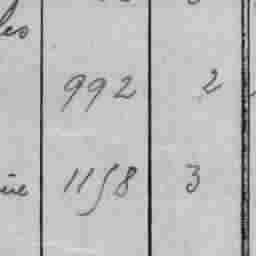 les
992 2
1158 3